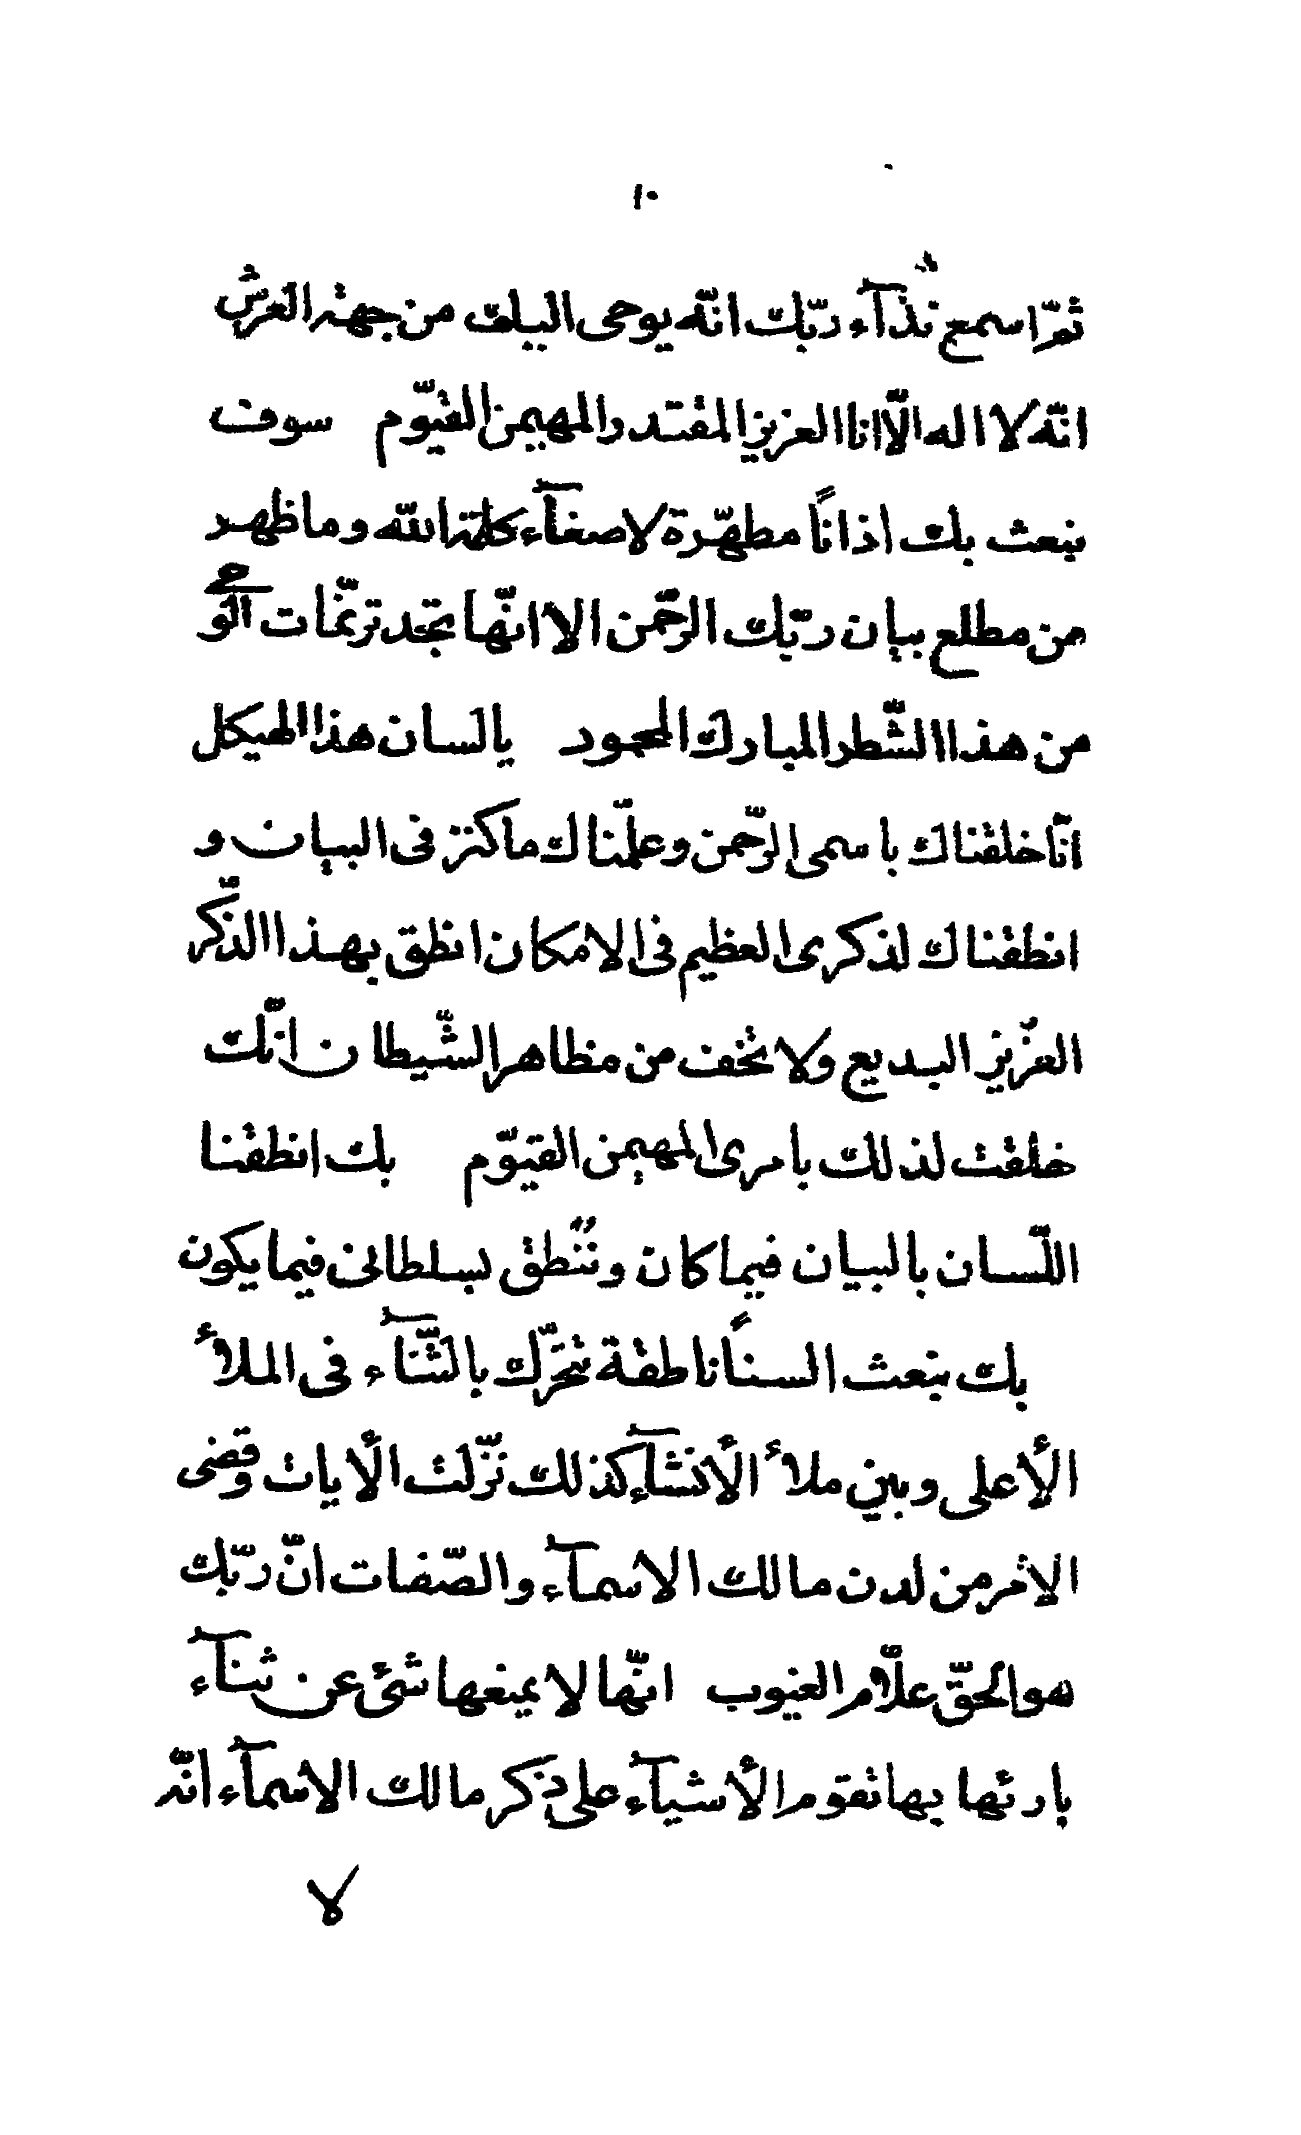 ١٠
ثمّ اسمع ندآء ربّك انّه يوحى اليك من جهة العرش
انّه لا اله الّا انا العزيز المقتدر المهيمن القيّوم سوف
نبعث بك اذاناً مطهّرة لاصغآء كلمة الله وما ظهر
من مطلع بيان ربّك الرّحمن الا انّها تجد ترنّمات الوحى
من هذا الشّطر المبارك المحمود يا لسان هذا الهيكل
انّا خلقناك باسمى الرّحمن وعلّمناك ما كنز فى البيان و
انطقناك لذكرى العظيم فى الامكان انطق بهذا الذّكر
العزيز البديع ولا تخف من مظاهر الشّيطان انّك
خلقت لذلك بامرى المهيمن القيّوم بك انطقنا
اللّسان بالبيان فيما كان وننطق بسلطانى فيما يكون
بك نبعث السناً ناطقة تتحرّك بالثّنآء فى الملأ
الأعلى وبين ملأ الأنشآء كذلك نزّلت الأيات وقضى
الامر من لدن مالك الاسمآء والصّفات انّ ربّك
هو الحقّ علّام الغيوب انّها لا يمنعها شئ عن ثنآء
بارئها بها تقوم الأشيآء على ذكر مالك الاسمآء انّه
لا